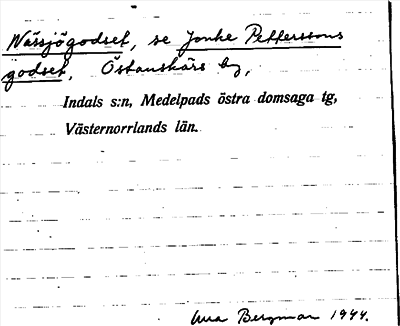 Nässjögodset, se Jonke Petterssons
godset, Östanskärs by,
Indals s:n, Medelpads östra domsaga tg,
Västernorrlands län.
Bergman 1944.